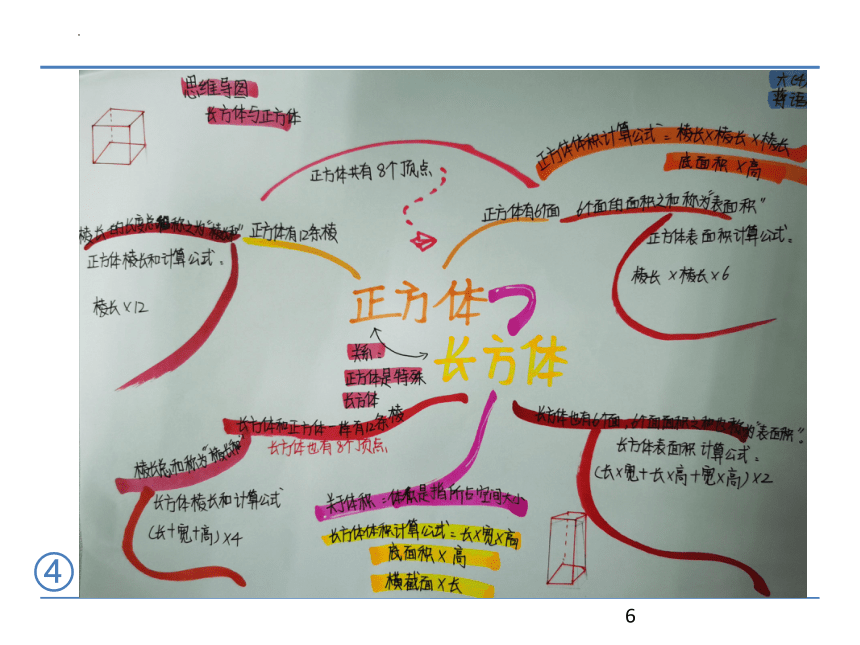 思维导图
长方体与正方体
正方体体积计算公式=棱长×棱长×棱长
底面积×高
正方体共有8个顶点
正方体有6个面
6个面的面积之和称为"表面积"
正方体表面积计算公式:
棱长×棱长×6
正方体有12条棱
正方体棱长和计算公式:
棱长×12
正方体
长方体
关系:
正方体是特殊
长方体
长方体和正方体一样有12条棱
长方体也有8个顶点
棱长总和称为"棱长和"
长方体棱长和计算公式
(长+宽+高)×4
长方体也有6个面,6个面面积之和
称为"表面积"。
长方体表面积计算公式:
(长×宽+长×高+宽×高)×2
关于体积:体积是指所占空间大小
长方体体积计算公式=长×宽×高
底面积×高
横截面×长
④
6